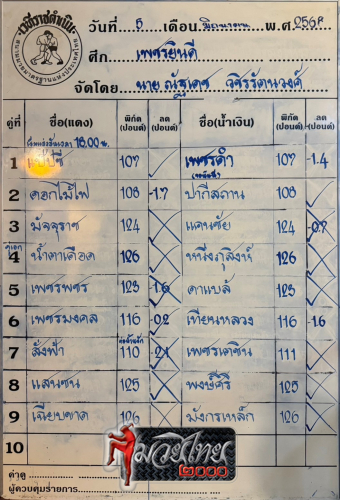 เวทีราชดำเนิน
วันที่ 5 เดือน มิถุนายน พ.ศ. 2568
ศึก เพชรยินดี
จัดโดย นาย ณัฐเดช วชิรรัตนวงศ์
คู่ที่ ชื่อ(แดง) พิกัด (ปอนด์) ลด (ปอนด์) ชื่อ(น้ำเงิน) พิกัด (ปอนด์) ลด (ปอนด์)
18.00 น.
1 107 เพชรดำ 107 -1.4
2 ดอกไม้ไฟ 108 -1.7 ปากีสถาน 108
3 มัจจุราช 124 แดนชัย 124 -0.7
คู่เอก
4 น้ำตาเดือด 126 หนึ่งภูสิงห์ 126
5 เพชรพชร 123 -1.6 คาแบล้ 123
6 เพชรมงคล 116 -0.2 เทียนหลวง 116 -1.6
7 สั่งฟ้า 110 -2.1 เพชรเตชิน 111
8 แสนซน 125 พงษ์ศิริ 125
9 เฉียบขาด 126 มังกรเหล็ก 126
10
คำคู่
ผู้ควบคุมรายการ
มวยไทย
2000